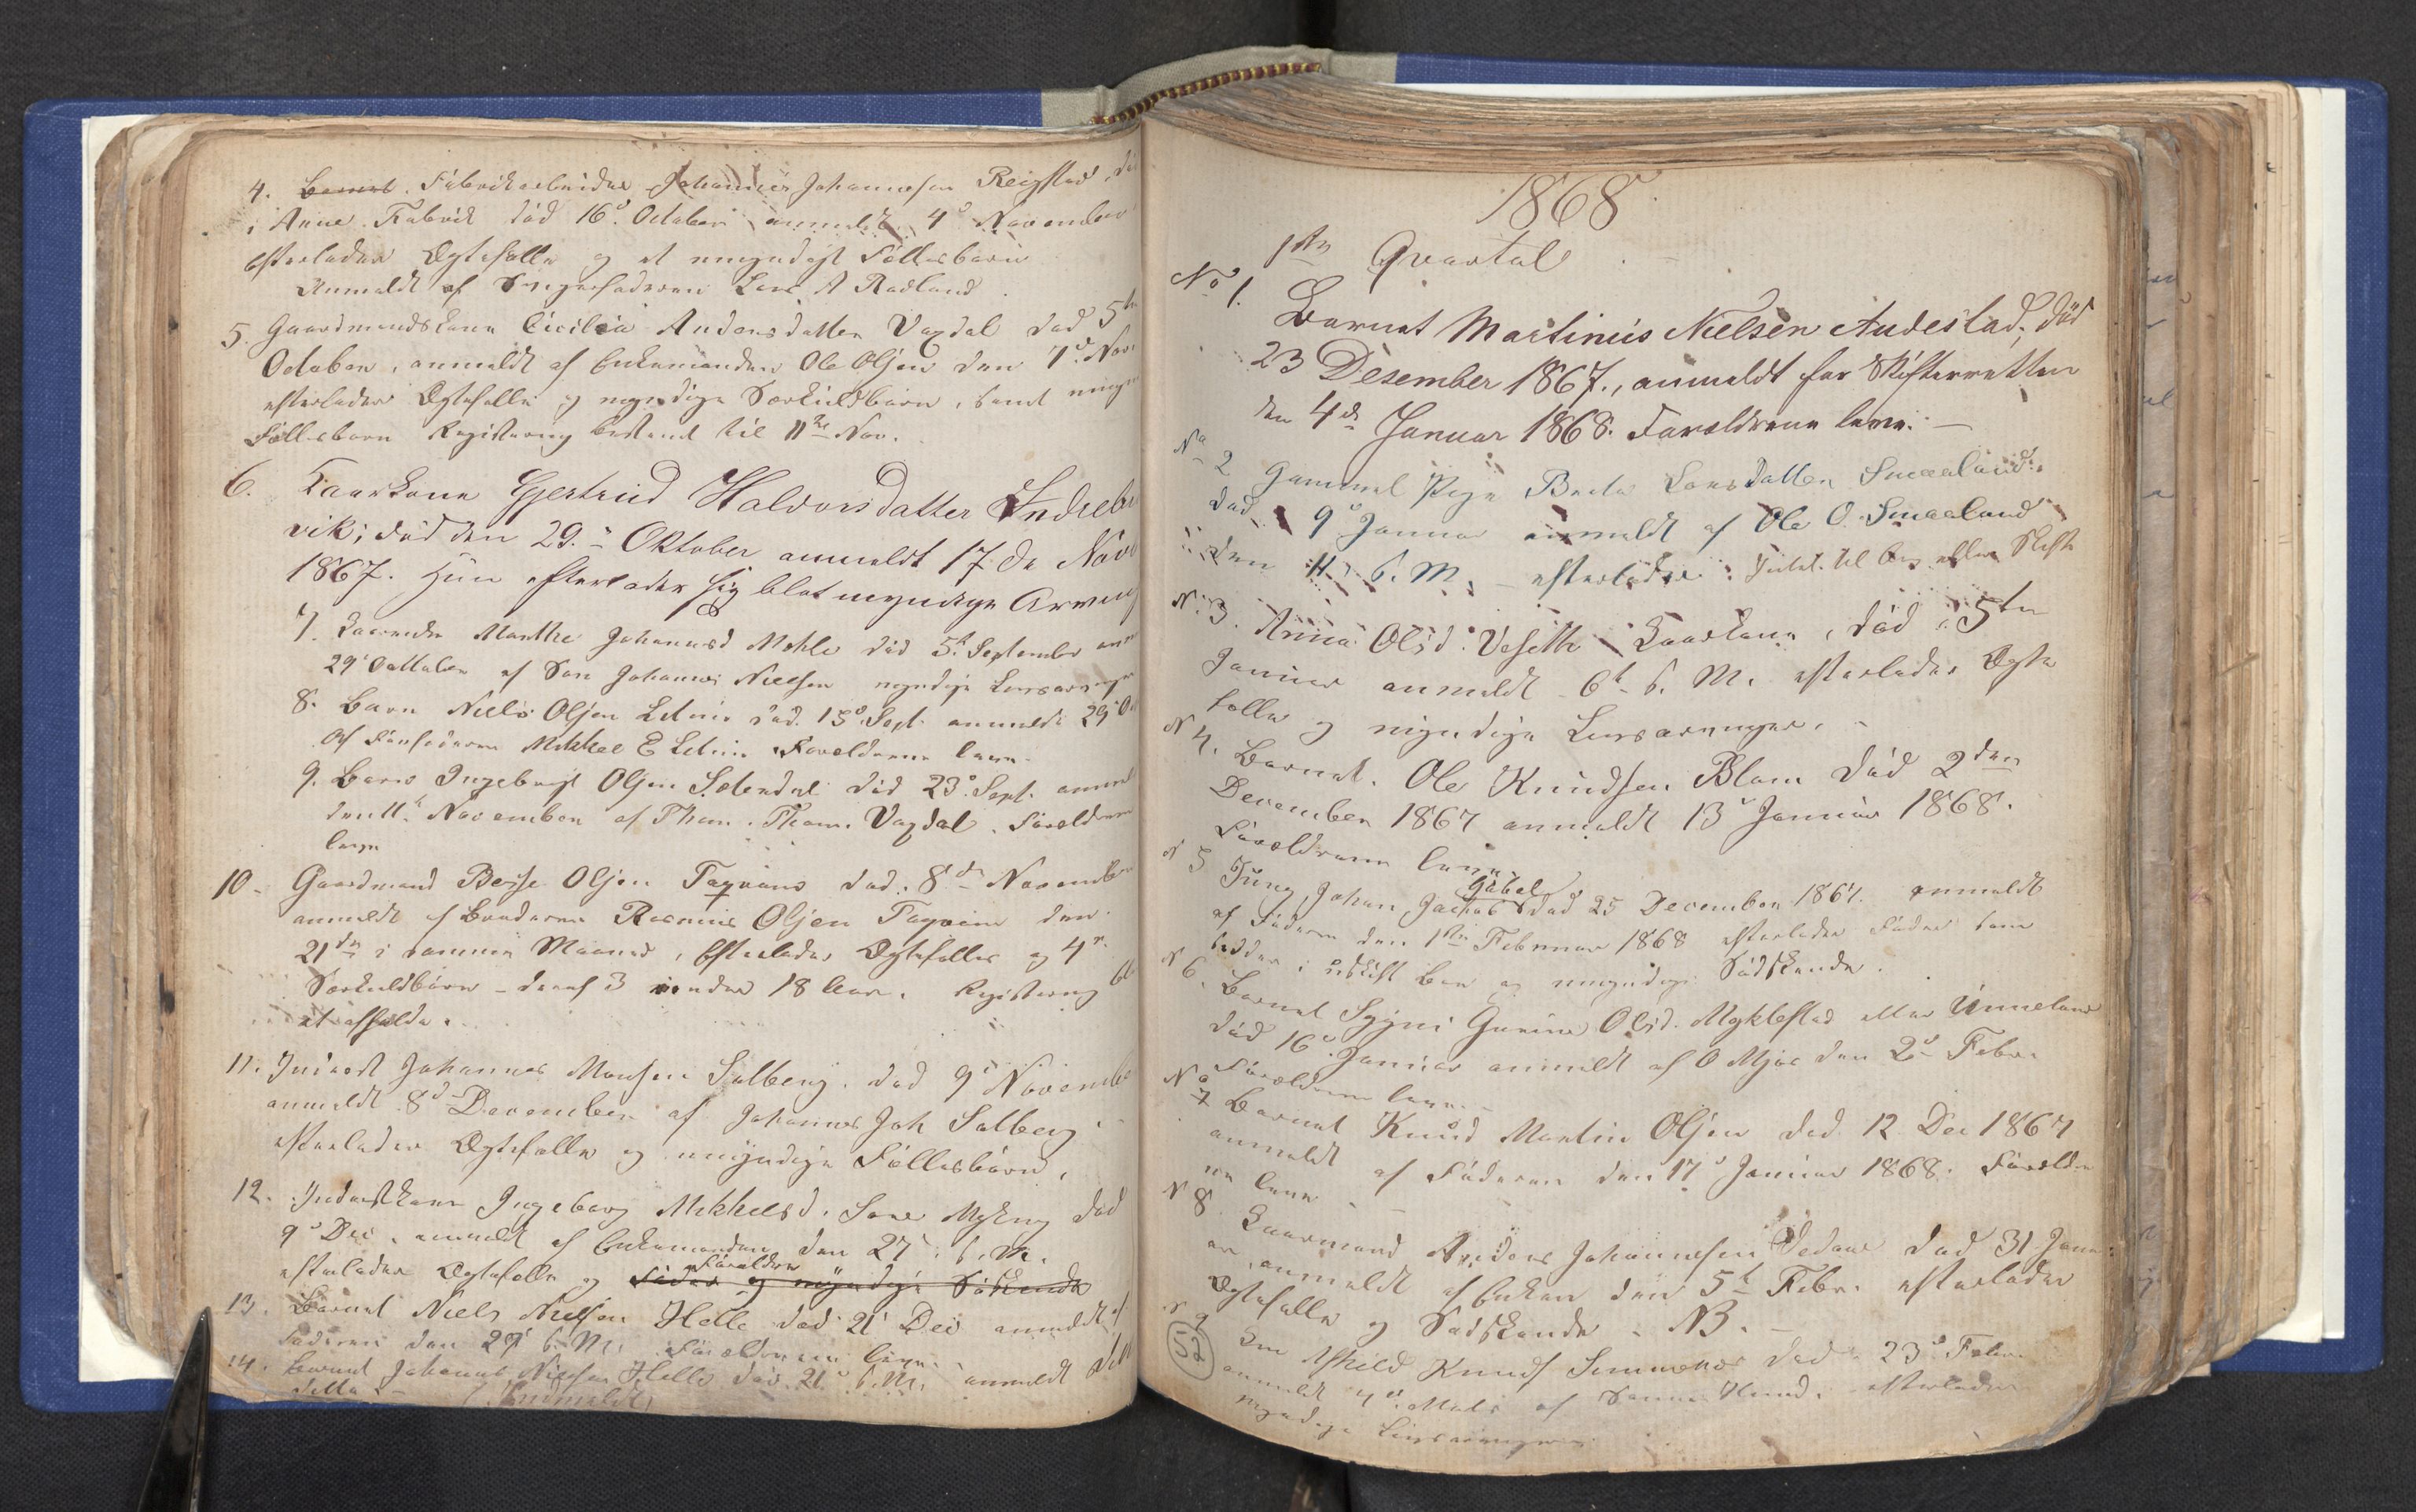 4. Barnet. Fabrikarbeider Johannes Johannesen Reigstad, dö
i Arne Fabrik död 16de October anmeldt 4de November
efterlader Ægtefelle og et umyndigt Fellesbarn
Anmeldt af Svigerfaderen Lars A Radland
5. Gaardmandskone Cicilia Andersdatter Vaxdal död 5te
October, anmeldt af Enkemanden Ole Olsen den 7de Nov.
efterlader Ægtefelle og myndige Særkuldbørn, samt umyn
Fellesbørn Registrering bestemt til 11te Nov.
6. Kaarkone Gjertrud Haldorsdatter Indrebö
vik; död den 29de Oktober anmeldt 17de Nov
1867. Hun efterlader sig blot myndige Arving
7. Kaarenke Marthe Johannesd Mohle död 5te September anm
29de Octtober af Søn Johannes Nielsen myndige Livsarvinger
8. Barn Niels Olsen död 15de Sept. anmeldt 29de Oct
af Farfaderen Mikkel E Forældrene leve.
9. Barn Ingebrigt Olsen död 23de Sept. anmel
den 11te November af Thom. Thoms. Vaxdal. Forældrene
leve
10. Gaardmand Börge Olsen død 8de November
anmeldt af Broderen Rasmus Olsen den
21de i samme Maaned, Efterlader Ægtefelle og 4re
Særkuldbørn - deraf 3 under 18 Aar. Registrering bl
at affolde.
11. Inderst Johannes Monsen Solberg. död 9de Novembe
anmeldt 8de December af Johannes Joh Solberg
efterlader Ægtefelle og umyndige Fællesbørn,
12. Inderstkone Ingeborg Mikkelsd. Myking död
9de Dec. anmeldt af Enkemanden den 27de s. M.
Forældre
efterlader Ægtefelle og Fader og myndige Södskende
13. Barnet Niels Nielsen Helle död 21de Dec anmeldt af
Faderen den 29de s. M. Forældrene leve.
14. Barnet Johannes Nielsen Helle död 21de s. M. anmeldt
ditto -
1868
1ste Qvartal
No 1. Barnet Martinus Nielsen Audestad, död
23 Desember 1867, anmeldt for Skifteretten
den 4de Januar 1868. Forældrene leve. -
No 2 Gammel Pige Brita Larsdatter Smaaland.
död 9de Januar anmeldt af Ole O. Smaaland
den 11te s. M. - efterlader Intet til Arv eller Skifte
No 3. Anna Olsd. Veseth Kaarkone, död 5te
Januar anmeldt 6te s. M. efterlader Ægte
felle og myndige Livsarvinger. -
N 4. Barnet. Ole Knudsen Blom död 2den
December 1867 anmeldt 13de Januar 1868.
Forældrene leve.
N 5 Gäbel
Ung Johan Jachob död 25 December 1867. anmeldt
af Faderen den 1ste Februar 1868 efterlader Fader som
sidder i uskift Bo og umyndige Södskende.
N 6. Barnet Sygni Gurine Olsd. Myklestad eller Unneland
död 16de Januar anmeldt af O Mjøs den 2de Febr.
Forældrene leve. -
No 7 Barnet Knud Martin Olsen död 12 Dec 1867
anmeldt af Faderen den 17de Januar 1868. Forældre
ne leve -
N 8. Kaarmand Anders Johannesen Vedaae död 31 Janu
ar, anmeldt af Enken den 5te Febr. efterlader
Ægtefelle og Södskende. NB. -
N 9 Enke Askild Knuds Simmenes död 23de Febr.
anmeldt 4de Marts af Sønnen Knud. efterlader
myndige Livsarvinger
52